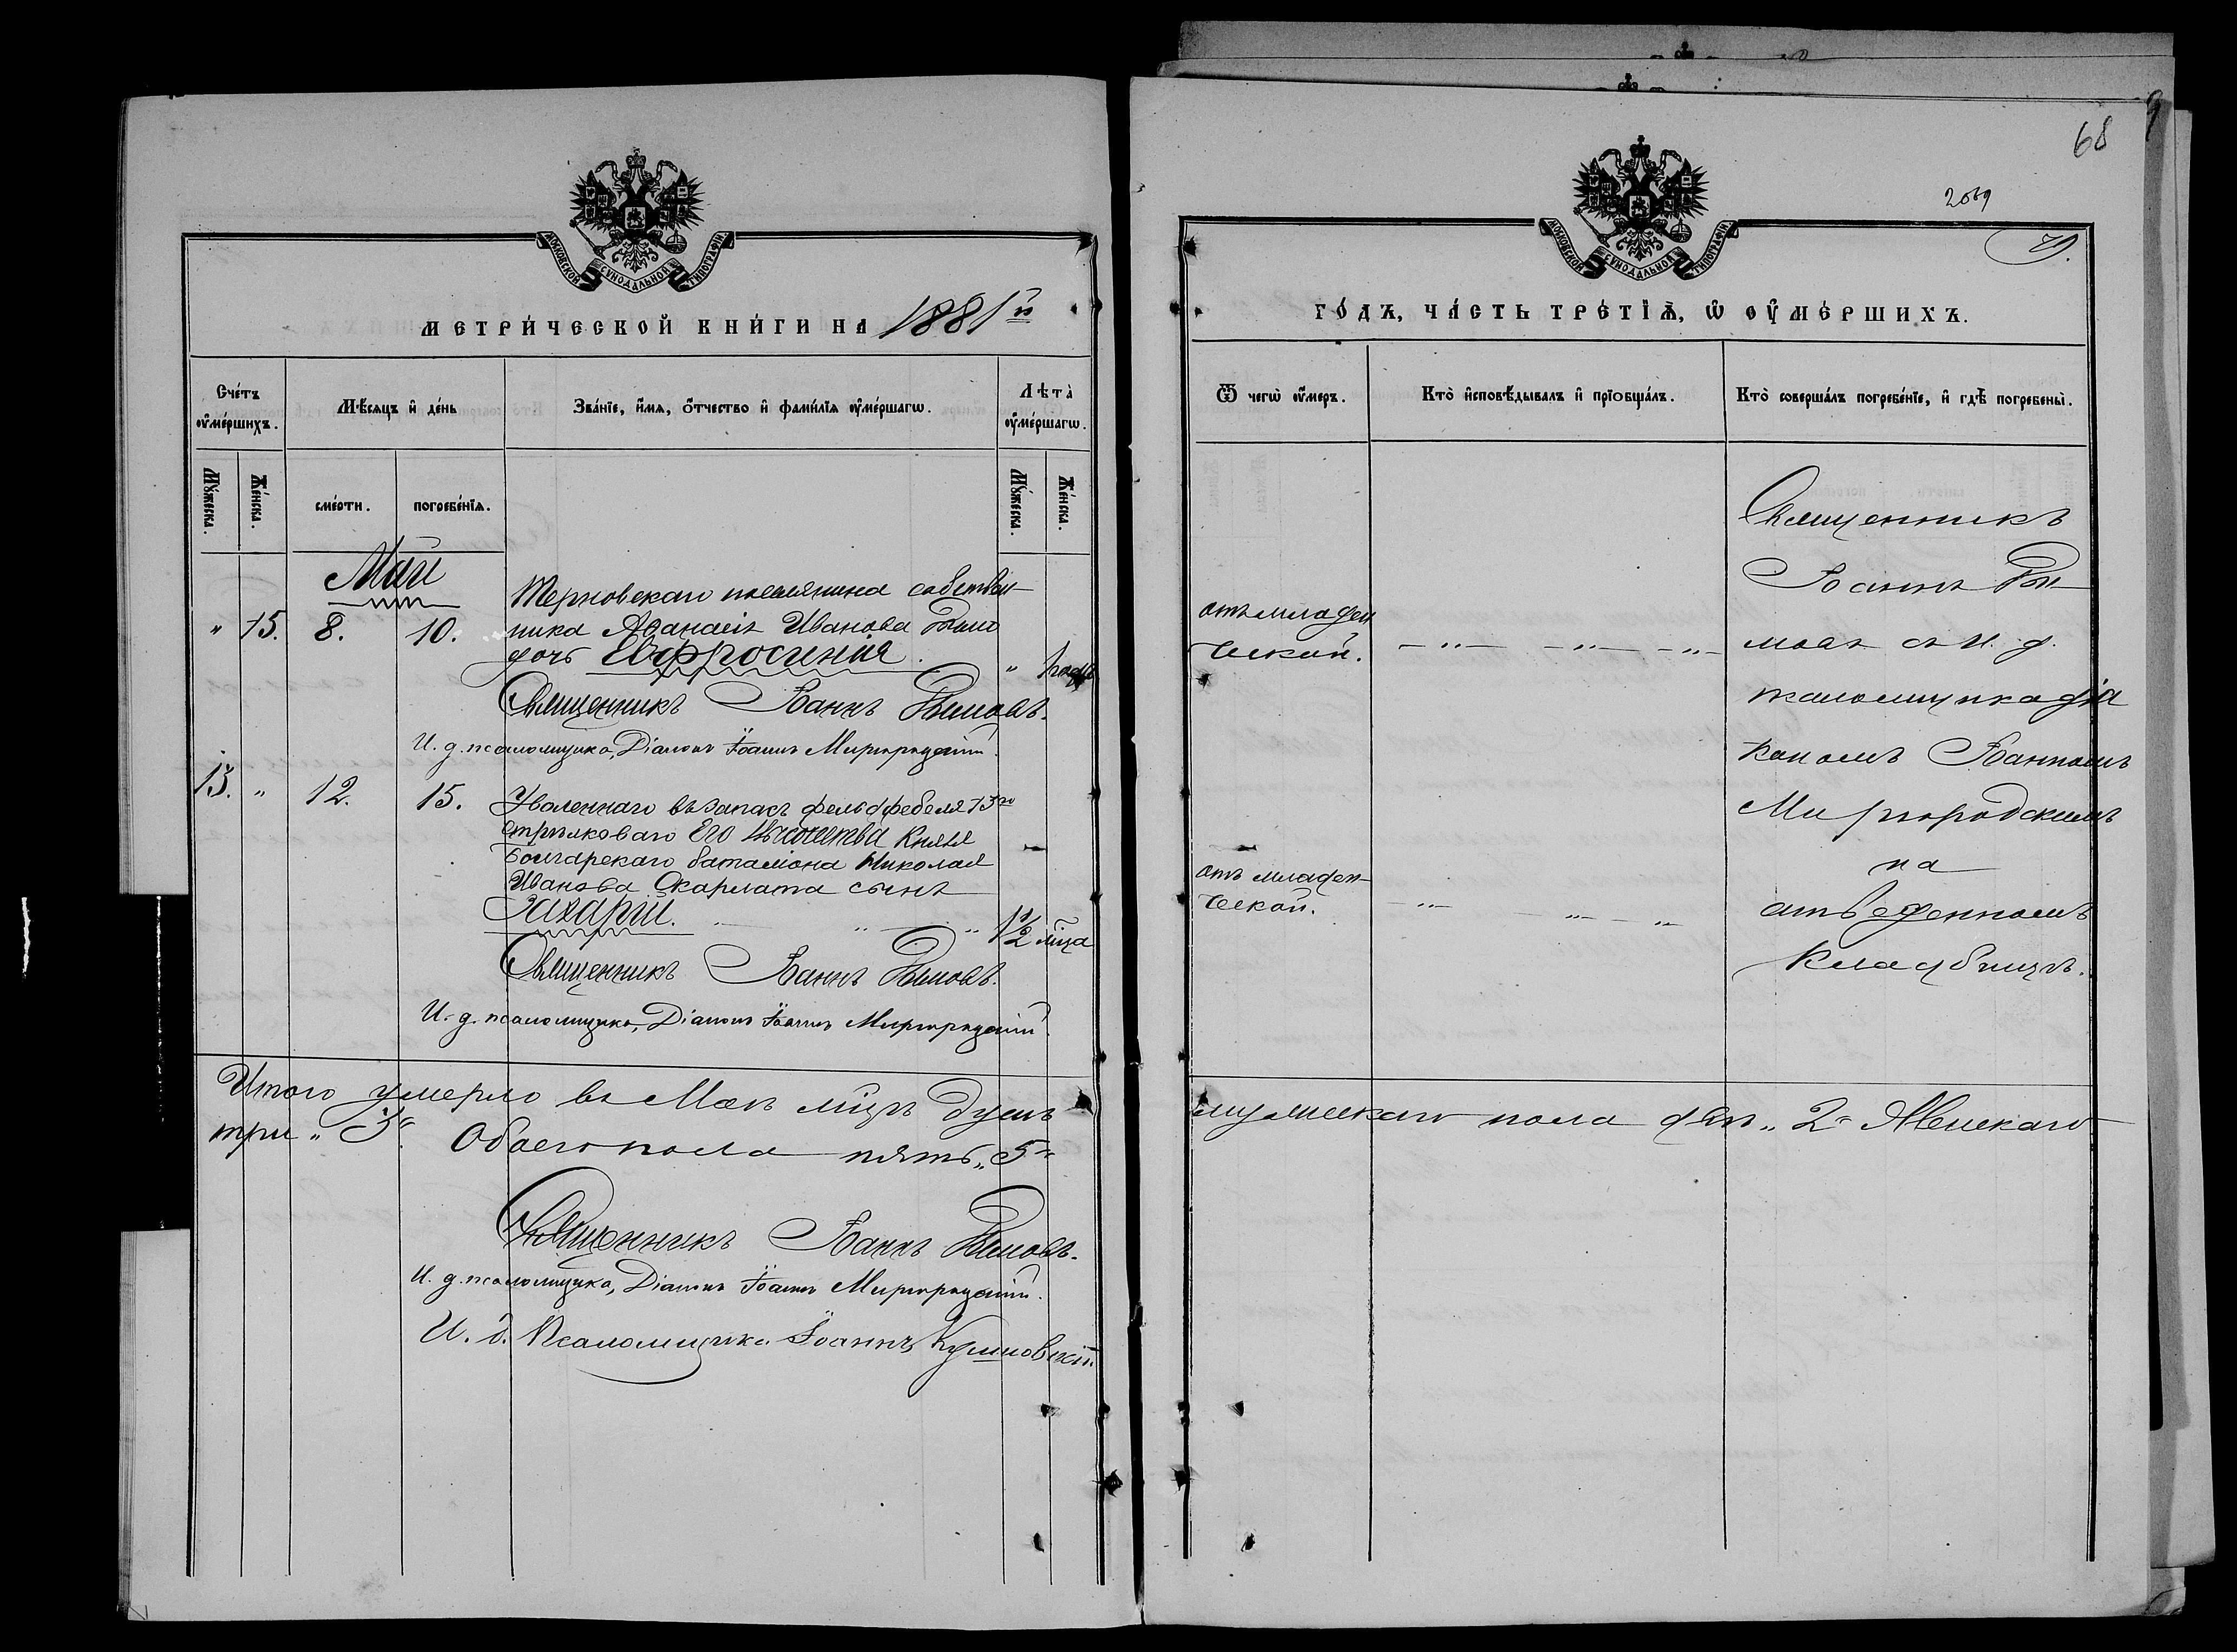 МОСКОВСКОЙ СѴНОДАЛЬНОЙ ТИПОГРАФІИ
МЕТРИ́ЧЕСКОЙ КНИ́ГИ НА 1881й
Сче́тъ ᲂу҆ме́ршихъ.
Мѣ́сяцъ и҆ де́нь
Зва́нїе, и҆́мѧ, ѻ҆́тчество и҆ фами́лїѧ ᲂу҆ме́ршагѡ.
Лѣ̀та̀ ᲂу҆ме́ршагѡ.
Мꙋ́жеска.
Же́нска.
сме́рти.
погребе́нїѧ.
Мꙋ́жеска.
Же́нска.
Май
Терновскаго поселянина собствен-
" 15. 8. 10. ника Аѳанасія Иванова
дочь Евфросинія. " 1 годъ
Священникъ Іоаннъ
И. д. псаломщика, Діаконъ Іоаннъ Миргородскій.
13. " 12. 15. Уволеннаго въ запасъ фельдфебеля 13го
стрѣлковаго Его Высочества Князя
Болгарскаго баталіона Николая
Иванова Скарлата сынъ
Захарій. " " 1½ мѣца
Священникъ Іоаннъ
И. д. псаломщика, Діаконъ Іоаннъ Миргородскій.
Итого умерло въ Маѣ мѣцѣ душъ
три "3" Обоего пола пять "5"
Священникъ Іоаннъ
И. д. псаломщика, Діаконъ Іоаннъ Миргородскій.
И. д. Псаломщика Іоаннъ
68
МОСКОВСКОЙ СѴНОДАЛЬНОЙ ТИПОГРАФІИ
ГО́ДЪ, ЧА́СТЬ ТРЕ́ТІѦ, Ѡ ᲂУ҆МЕ́РШИХЪ.
Ѿ чегѡ̀ ᲂу҆́меръ.
Кто̀ и҆сповѣ́дывалъ и҆ прїѻбща́лъ.
Кто̀ соверша́лъ погребе́нїе, и҆ гдѣ̀ погребены̀.
отъ младен
ческой. - " - - " - - " -
отъ младен-
ческой. - " - - " - "
Священникъ
Іоаннъ
съ и. д.
псаломщика діа
кономъ Іоанномъ
Миргородскимъ
на
отведенномъ
кладбищѣ.
мужескаго пола два "2" Женскаго